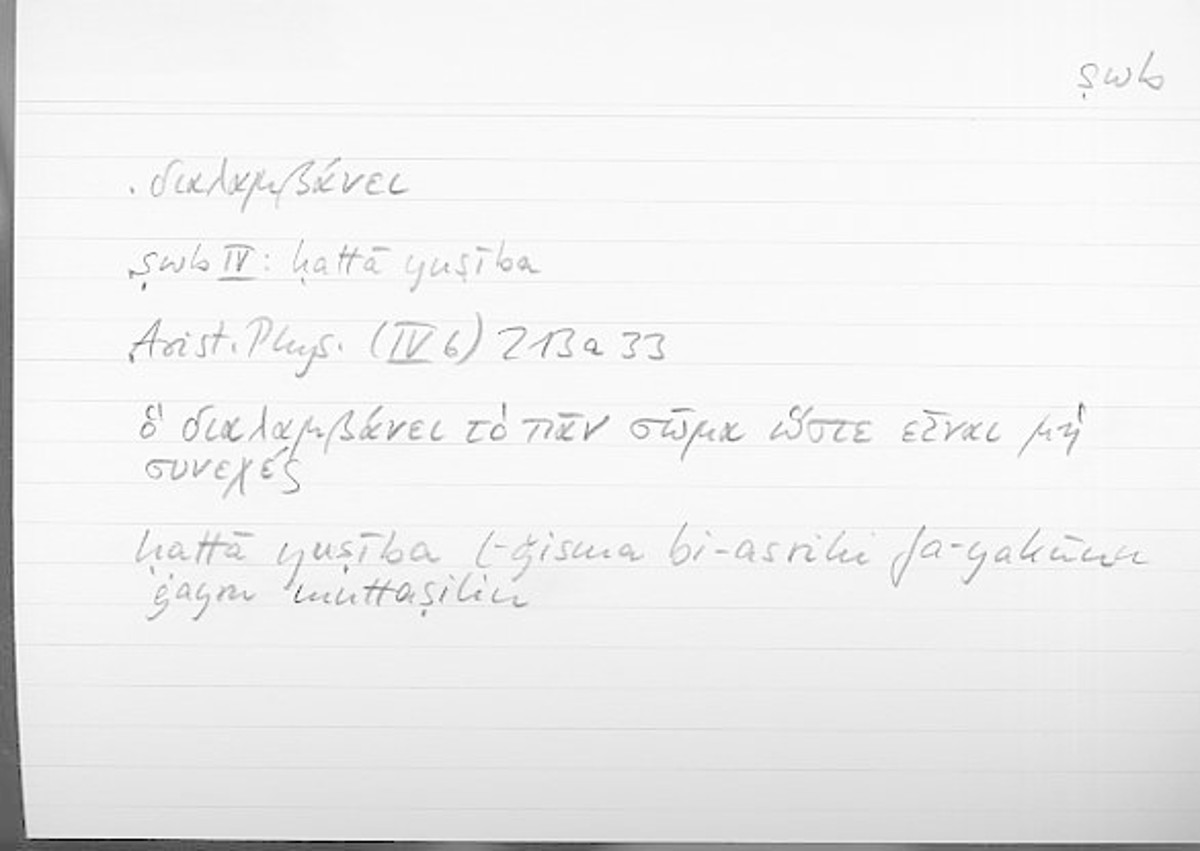 ṣwb
. διαλαμβάνει
ṣwb IV: ḥattā yuṣība
Arist. Phys. (IV 6) 213a 33
ὃ διαλαμβάνει τὸ πᾶν σῶμα ὥστε εἶναι μὴ
συνεχές
ḥattā yuṣība l-ǧisma bi-asrihi fa-yakūnu
ġayra muttaṣilin